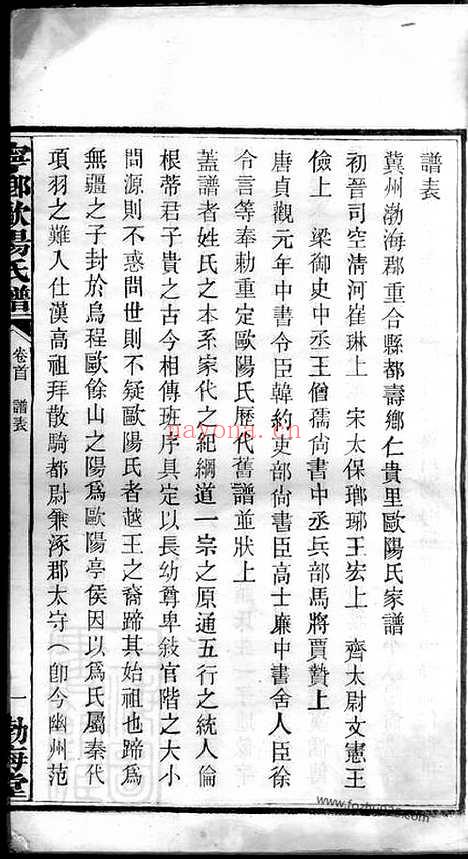 譜表
冀州渤海郡重合縣都壽鄉仁貴里歐陽氏家譜
初晉司空清河崔琳上　宋太保瑯琊王宏上　齊太尉文憲王
儉上　梁御史中丞王僧孺尚書中丞兵部馬將賈贊上
唐貞觀元年中書令臣韓約吏部尚書臣高士廉中書舍人臣徐
令言等奉勅重定歐陽氏歷代舊譜並狀上
蓋譜者姓氏之本系家代之紀綱道一宗之原通五行之統人倫
根蒂君子貴之古今相傳班序具定以長幼尊卑敍官階之大小
問源則不惑問世則不疑歐陽氏者越王之裔蹄其始祖也蹄爲
無疆之子封於烏程歐餘山之陽爲歐陽亭侯因以爲氏屬秦代
項羽之難人仕漢高祖拜散騎都尉兼涿郡太守（卽今幽州范
寧鄉歐陽氏譜
卷首　譜表
一
渤海堂
nayona.cn
www.fozhupu.com